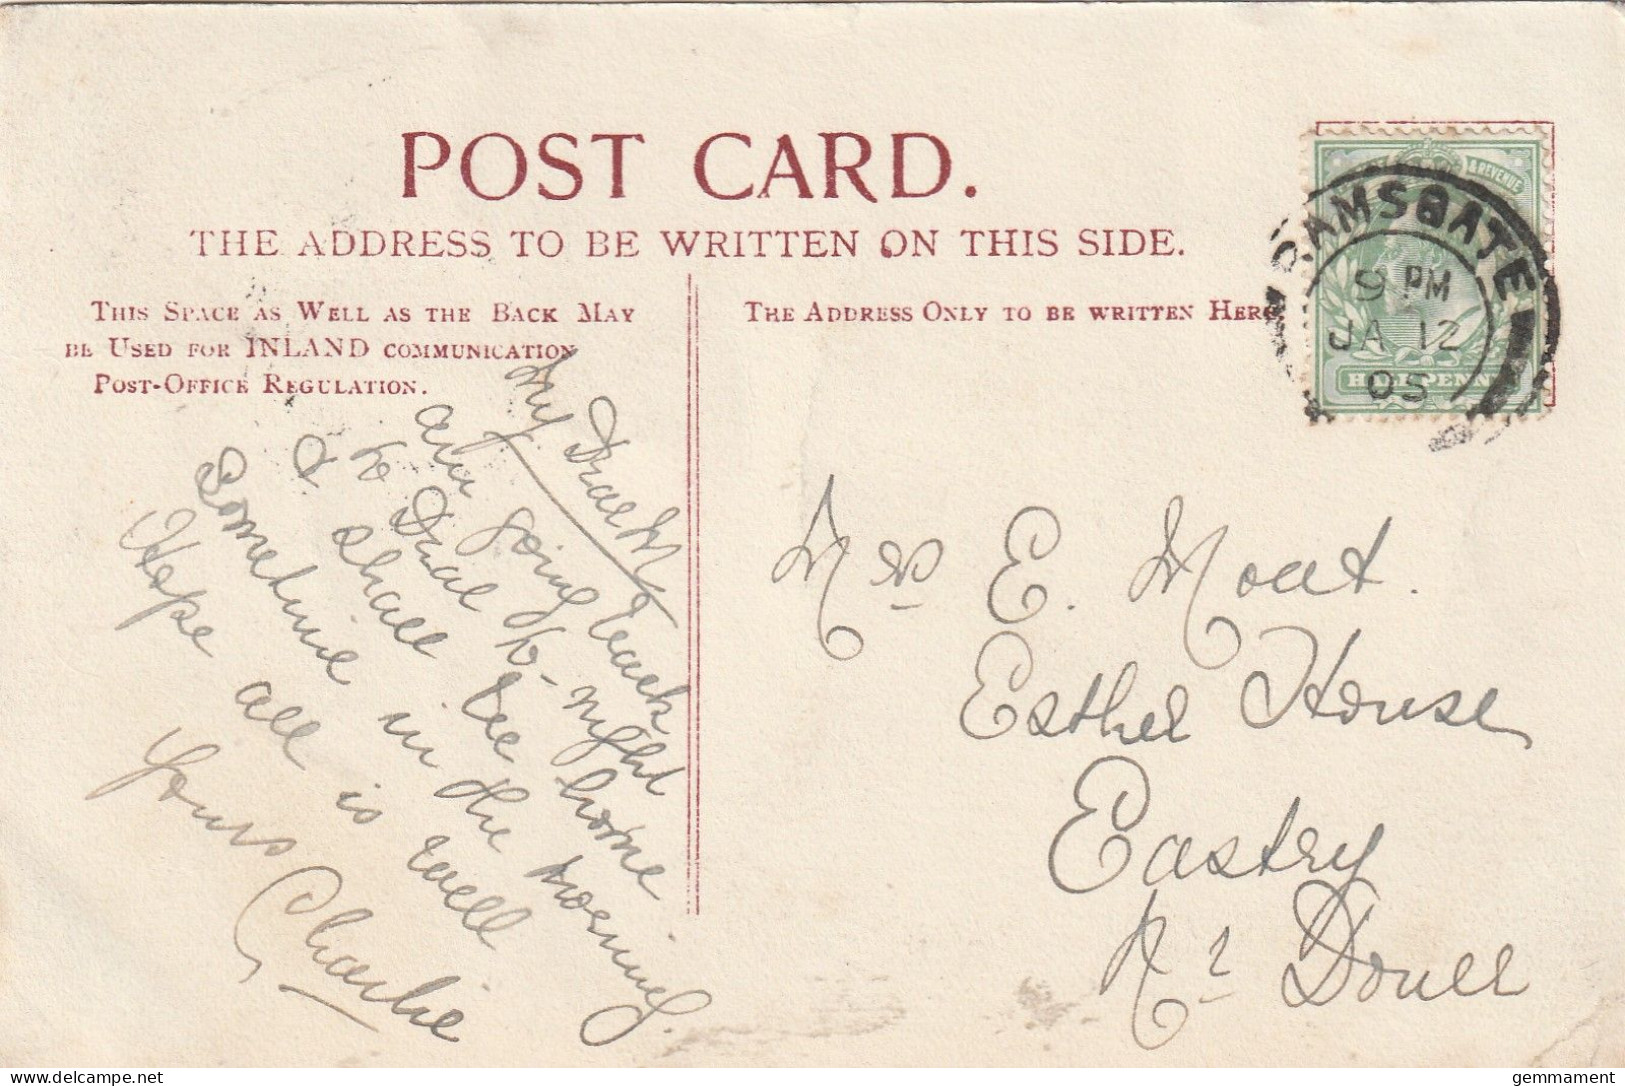 POST CARD.
THE ADDRESS TO BE WRITTEN ON THIS SIDE.
THIS SPACE AS WELL AS THE BACK MAY
BE USED FOR INLAND COMMUNICATION
POST-OFFICE REGULATION.
THE ADDRESS ONLY TO BE WRITTEN HERE
& REVENUE
RAMSGATE
9 PM
JA 12
05
HALFPENNY
My Dear M
am going back
to Deal to-night
& shall be home
Sometime in the morning.
Hope all is well
Yours
Charlie
Mrs E. Mout.
Esthel House
Eastry
Nr Douer
gemmament